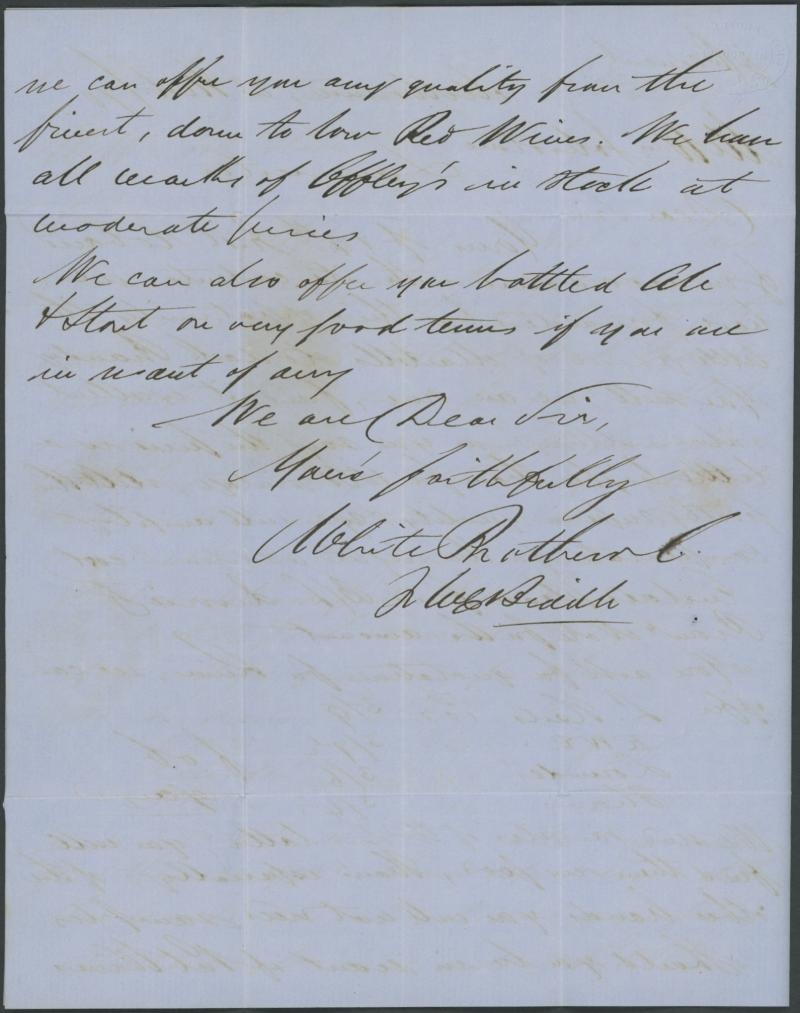 we can offer you any quality from the
finest, down to low Red Wines. We have
all marks of Offley's in stock at
moderate prices
We can also offer you bottled Ale
& Stout on very good terms if you are
in want of any
We are Dear Sir,
Yours faithfully
White Brothers & C.
Biddle